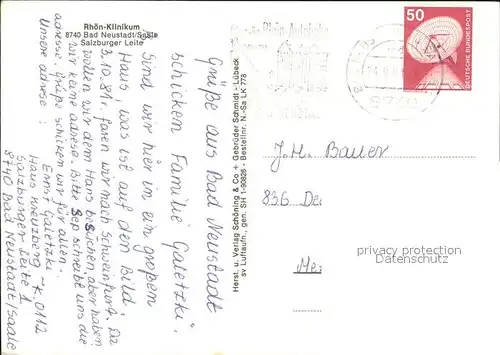 Rhön-Klinikum
8740 Bad Neustadt/Saale
Salzburger Leite
Grüße aus Bad Neustadt
schicken Familie Galetzki.
Sind wir hier in ein großem
Haus, was ist auf dem Bild.
3.10.81r. faren wir nach Schweinfurg. Da
wollen wir dem Hans besuchen, aber haben
wir keine adrese. Bitte Sep schreibe uns die
adrese. Grüße schicken wir für allen.
Unsere adrese: Ernst Galetzki
Haus Kreuzberg - K. 0112
Salzburger Leite 1
8740 Bad Neustadt/Saale
Herst. u. Verlag Schöning & Co + Gebrüder Schmidt - Lübeck
sv Luftaufn., gen. SH 1-90826 - Bestellnr. N.-Sa LK 778
50
DEUTSCHE BUNDESPOST
8740
J.H. Bauer
836 De
privacy protection
Datenschutz